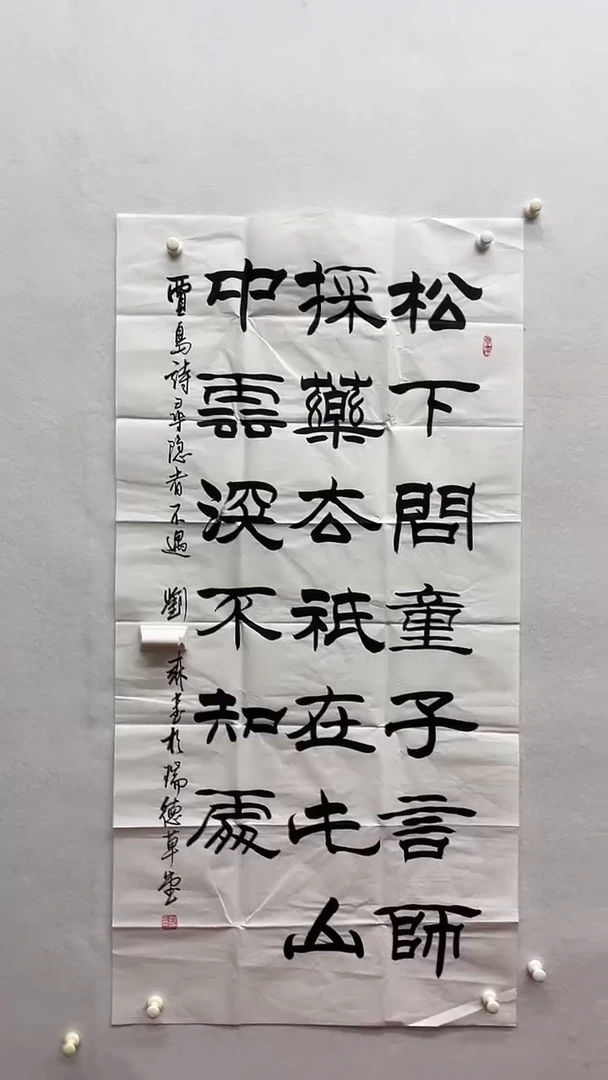 松下問童子言師
採藥去祇在此山
中雲深不知處
賈島詩尋隐者不遇 劉 書於瑞德草堂